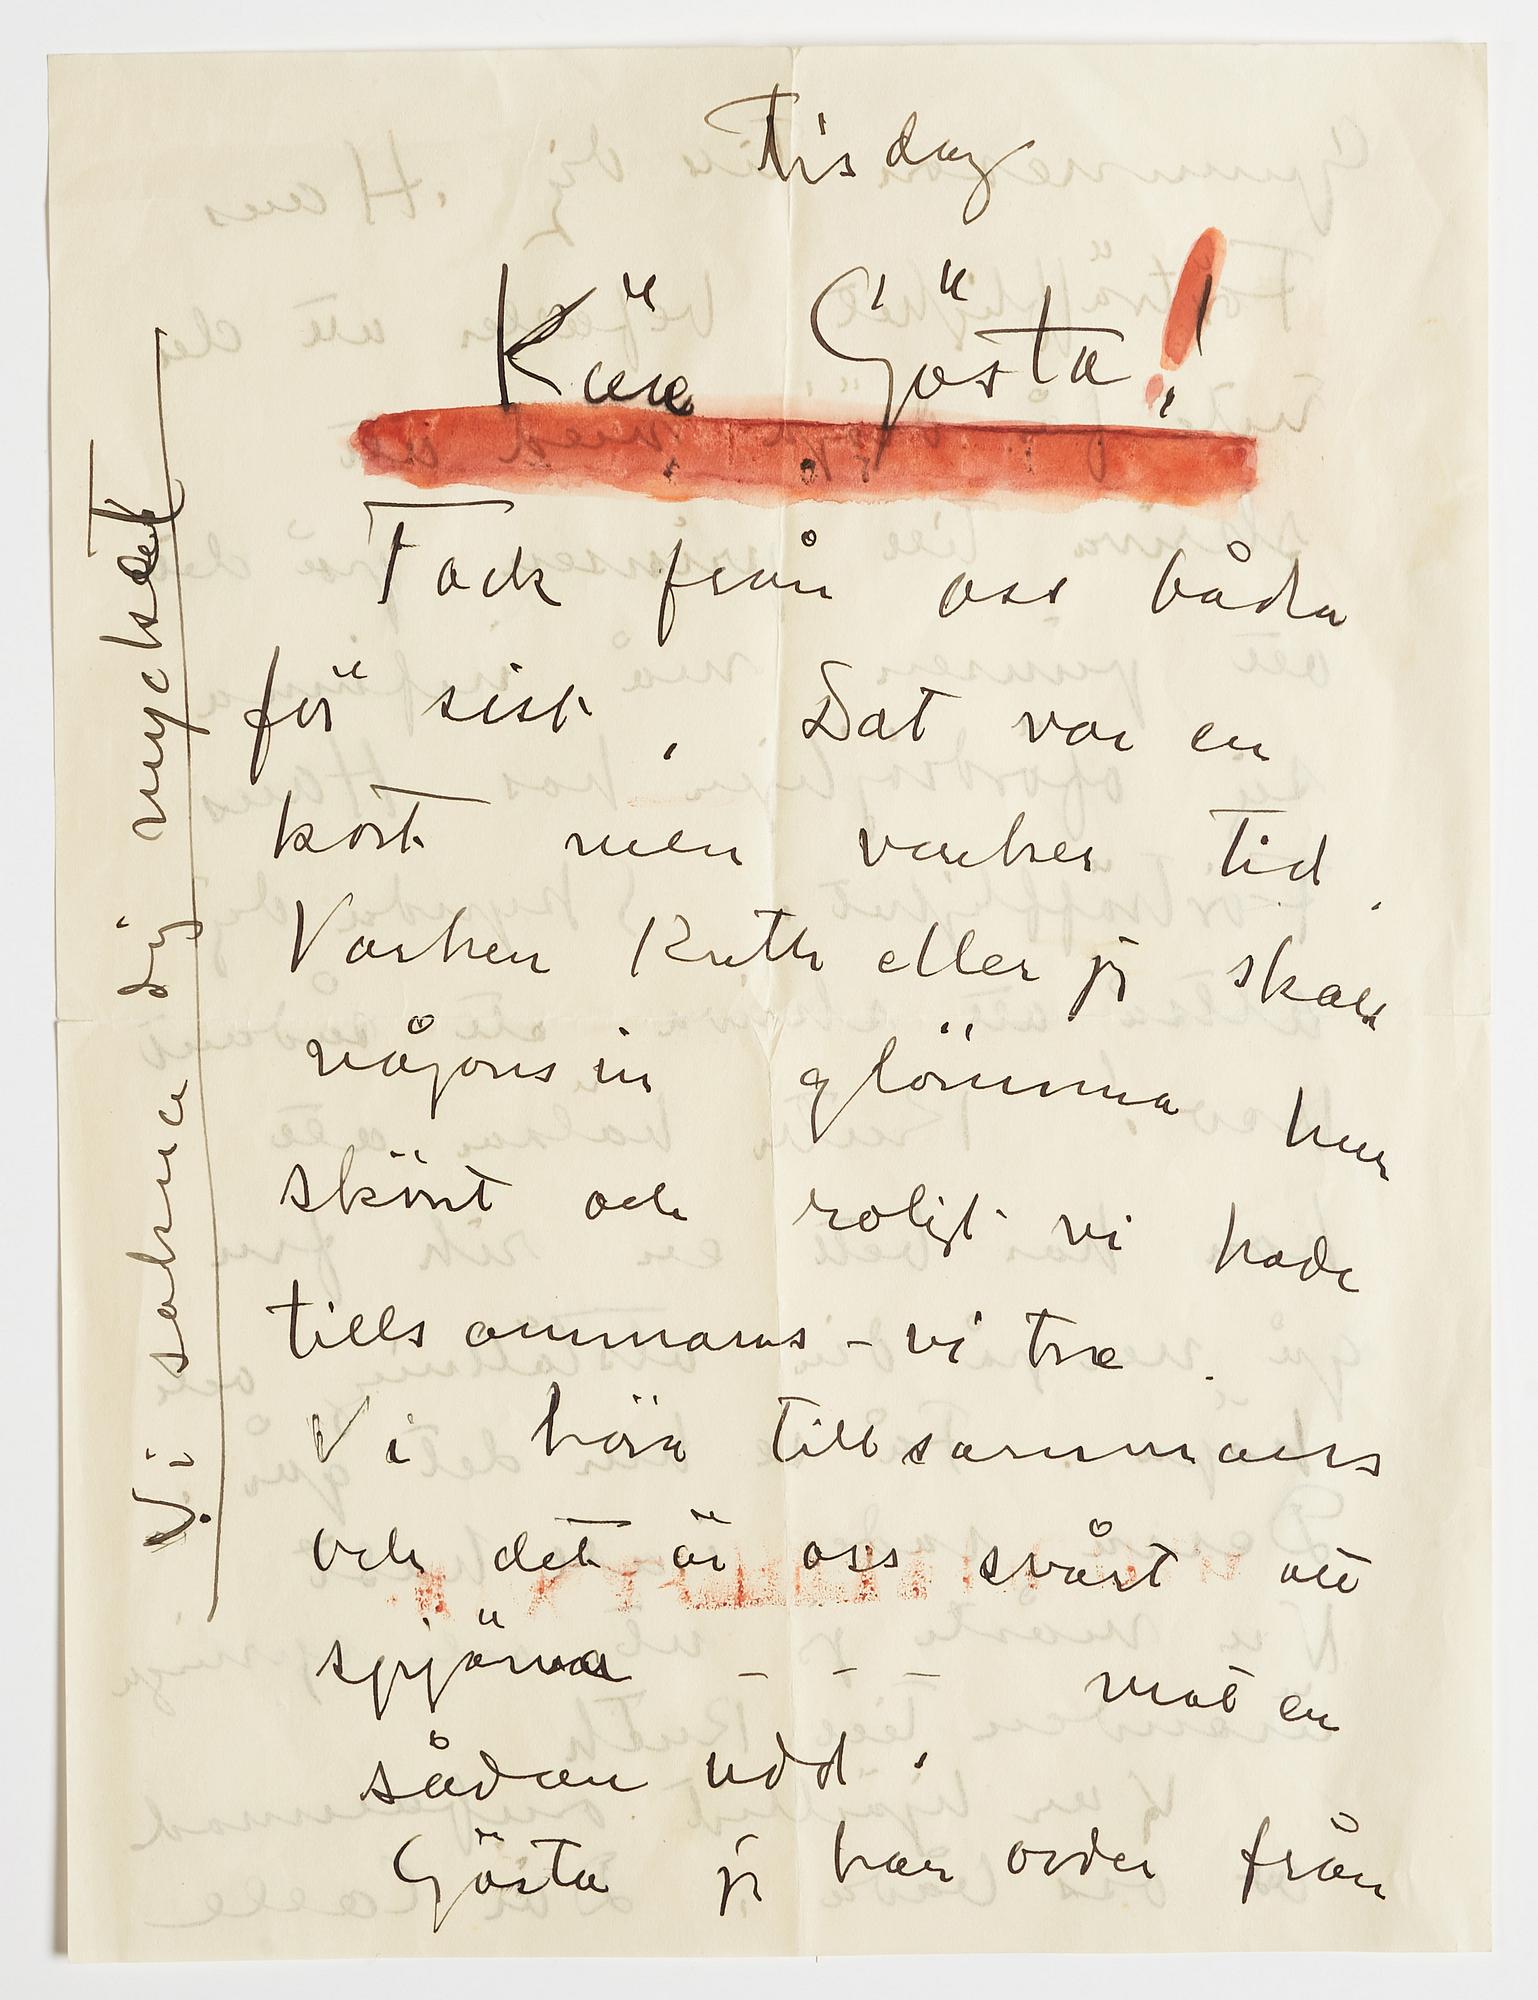 Tisdag
Käre Gösta!
Tack från oss båda
för sist. Det var en
kort men vacker tid.
Varken Ruth eller jg skall
någonsin glömma hur
skönt och roligt vi hade
tillsammans - vi tre.
Vi höra tillsammans
och det är oss svårt att
spjärna - - - mot en
sådan udd.
Gösta jg har order från
Vi sakna dig mycket